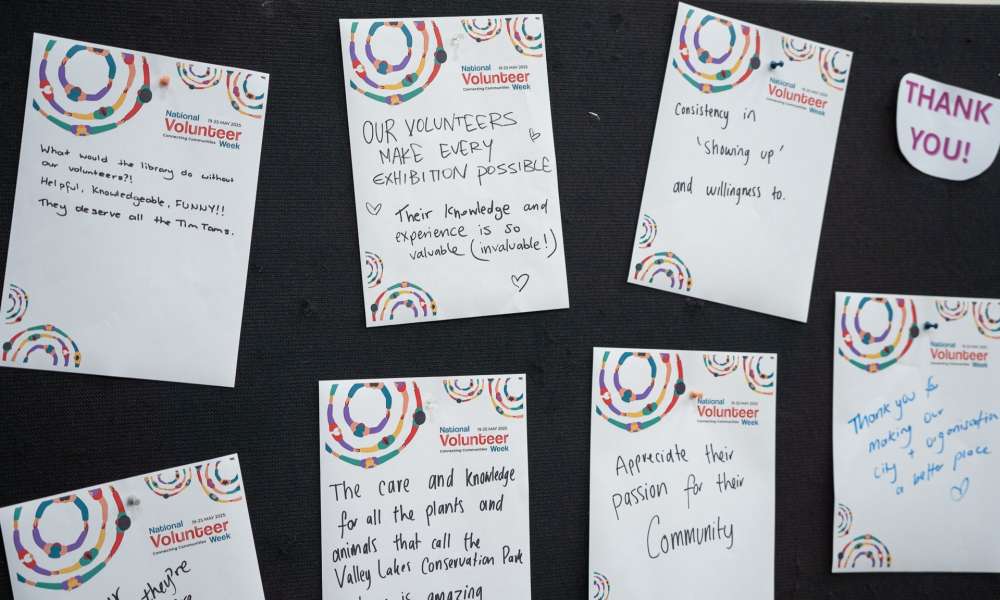 National
19-25 MAY 2025
Volunteer
Connecting Communities Week
What would the library do without
our volunteers?!
Helpful, Knowledgeable, FUNNY!!
They deserve all the Tim Tams.
National
19-25 MAY 2025
Volunteer
Connecting Communities Week
OUR VOLUNTEERS
MAKE EVERY
EXHIBITION POSSIBLE
Their knowledge and
experience is so
valuable (invaluable!)
National
19-25 MAY 2025
Volunteer
Connecting Communities Week
Consistency in
'showing up'
and willingness to.
THANK
YOU!
National
19-25 MAY 2025
Volunteer
Connecting Communities Week
they're
National
19-25 MAY 2025
Volunteer
Connecting Communities Week
The care and knowledge
for all the plants and
animals that call the
Valley Lakes Conservation Park
is amazing
National
19-25 MAY 2025
Volunteer
Connecting Communities Week
Appreciate their
passion for their
Community
National
19-25 MAY 2025
Volunteer
Connecting Communities Week
Thank you for
making our
city + organisation
a better place